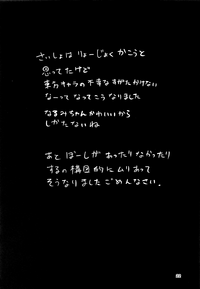 さいしょは りょーじょく かこうと
思ってたけど
某おキャラの不幸なすがたかけない
なーって なってこうなりました
なるみちゃんかわいいから
しかたないね
あと ぼーしが あったりなかったり
するの構図的にムリあって
そうなりましたごめんなさい.